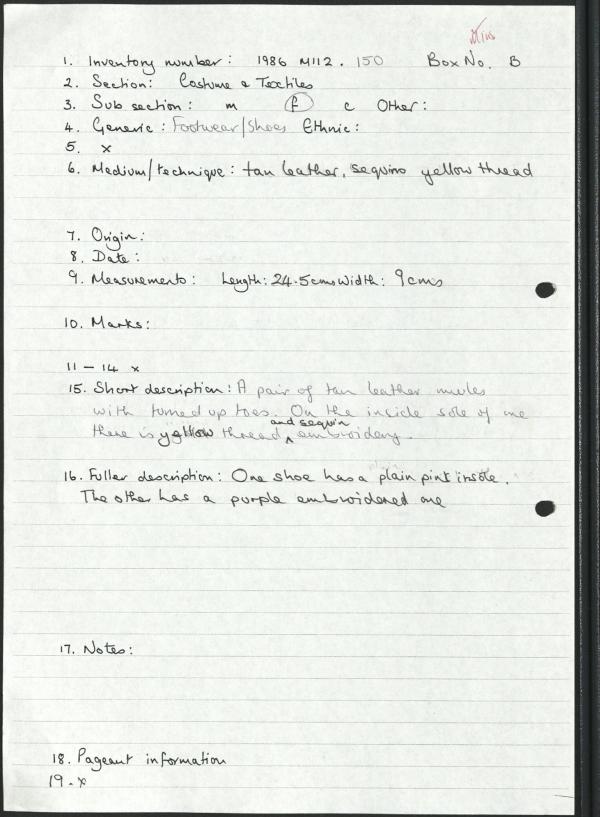 1. Inventory number: 1986 M112. 150 Box No. B
2. Section: Costume & Textiles
3. Sub section: m f c Other:
4. Generic: Footwear/Shoes Ethnic:
5. x
6. Medium/technique: tan leather, sequins yellow thread
7. Origin:
8. Date:
9. Measurements: Length: 24.5cms Width: 9cms
10. Marks:
11 - 14 x
15. Short description: A pair of tan leather mules
with turned up toes. On the inside sole of one
and sequin
there is yellow thread ^ embroidery.
16. Fuller description: One shoe has a plain pink insole.
The other has a purple embroidered one
17. Notes:
18. Pageant information
19. x